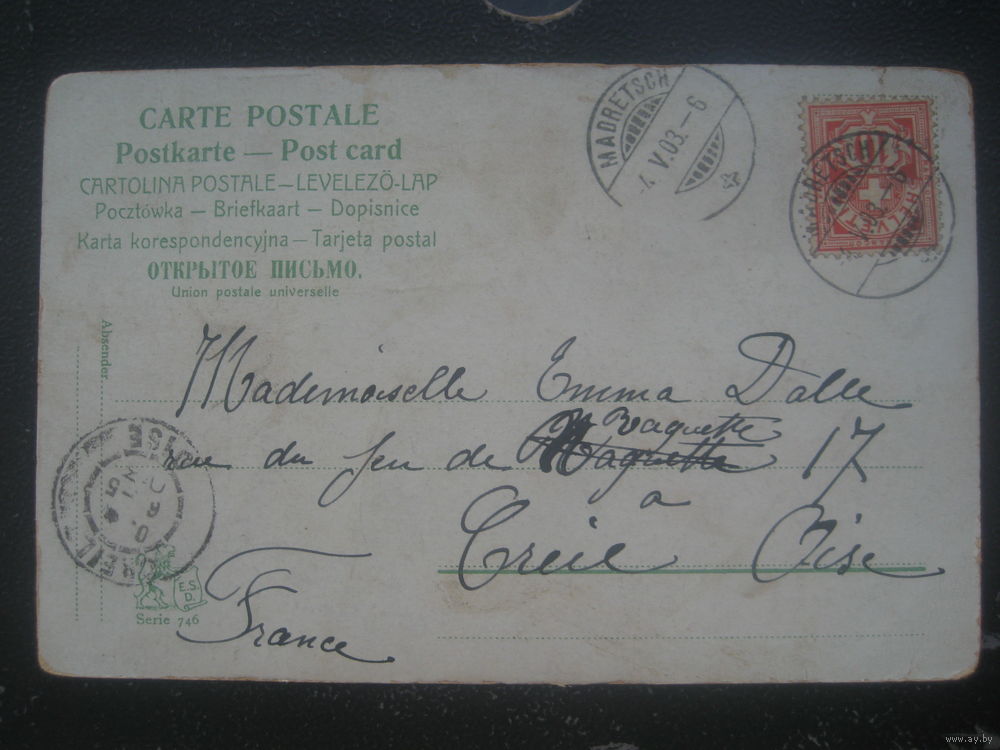 CARTE POSTALE
Postkarte — Post card
CARTOLINA POSTALE — LEVELEZŐ-LAP
Pocztówka — Briefkaart — Dopisnice
Karta korespondencyjna — Tarjeta postal
ОТКРЫТОЕ ПИСЬМО.
Union postale universelle
MADRETSCH
4. V.03.-6
MADRETSCH
HELVETIA
10
Absender.
Mademoiselle Emma Dalle
Baquette
rue du Jeu de 17
à
Creil Oise
France
CREIL
OISE
E.S.
D.
Serie 746
www.ay.by